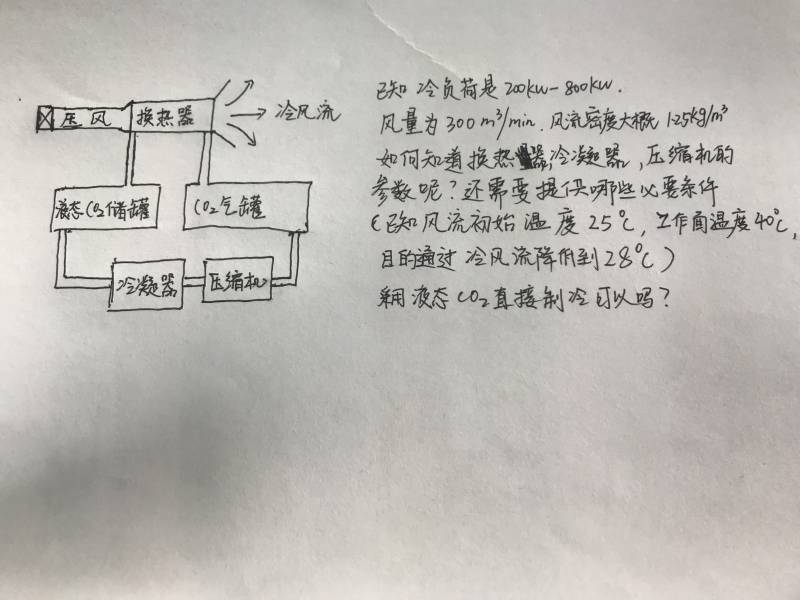 压风
换热器
冷风流
液态CO2储罐
CO2气罐
冷凝器
压缩机
已知 冷负荷是 200kw-800kw.
风量为 300 m³/min. 风流密度大概 1.25kg/m³
如何知道换热器,冷凝器,压缩机的
参数呢?还需要提供哪些必要条件
(已知风流初始温度25℃,工作面温度40℃,
目的通过冷风流降低到28℃)
采用液态CO2直接制冷可以吗?